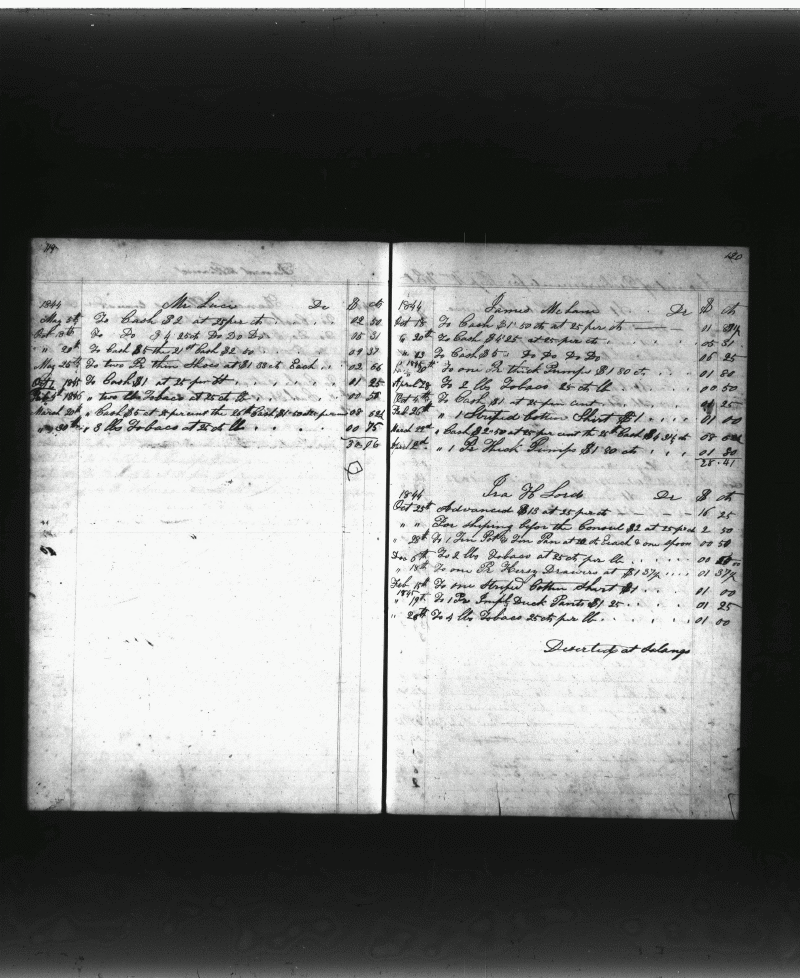 119
1844 Mr Luce Dr $ cts
May 25th To Cash $2 at 25 per ct 02 50
Oct 18th Do Do $4 25 cts Do Do Do 05 31
" 20th To Cash $5 the 21st Cash $2 50 09 37
May 25th To two Pr thin Shoes at $1 33 cts Each 02 66
Oct 1845 To Cash $1 at 25 per ct 01 25
1846 " two lbs Tobaco at 25 cts lb 00 50
March 20th " Cash $5 at 25 per cent the 25th Cash $1 50 cts 08
" 30th " 3 lbs Tobaco at 25 cts lb 00 75
120
1844 James Dr $ cts
Oct 18 To Cash $1 50 cts at 25 per cts 01
" 20th To Cash $4 25 at 25 per cts 05 31
" 23 To Cash $5 Do Do Do Do 06 25
1845 To one Pr thick Pumps $1 80 cts 01 80
April 28 To 2 lbs Tobaco 25 cts lb 00 50
Oct To Cash $1 at 25 per cent 01 25
Feb 26th " 1 Striped Cotten Shirt $1 01 00
March 22d " Cash $2 50 at 25 per cent the 25th Cash 08
" 1 Pr Thick Pumps $1 80 cts 01 80
28 41
1844 Ira H Lord Dr $ cts
Oct 23th Advanced $13 at 25 per cts 16 25
" " For Shiping befor the Consul $2 at 25 per ct 2 50
" 28th To 1 Tin Pot & Tin Pan at Each & one Spoon 00 50
Dec 6th To 2 lbs Tobaco at 25 cts per lb 00
" 18th To one Pr Kersey Drawers at $1 37½ 01 37½
Feb 15th To one Striped Cotten Shirt $1 01 00
1845 " 19th To 1 Pr Duck Pants $1 25 01 25
" 28th To 4 lbs Tobaco 25 cts per lb 01 00
Deserted at